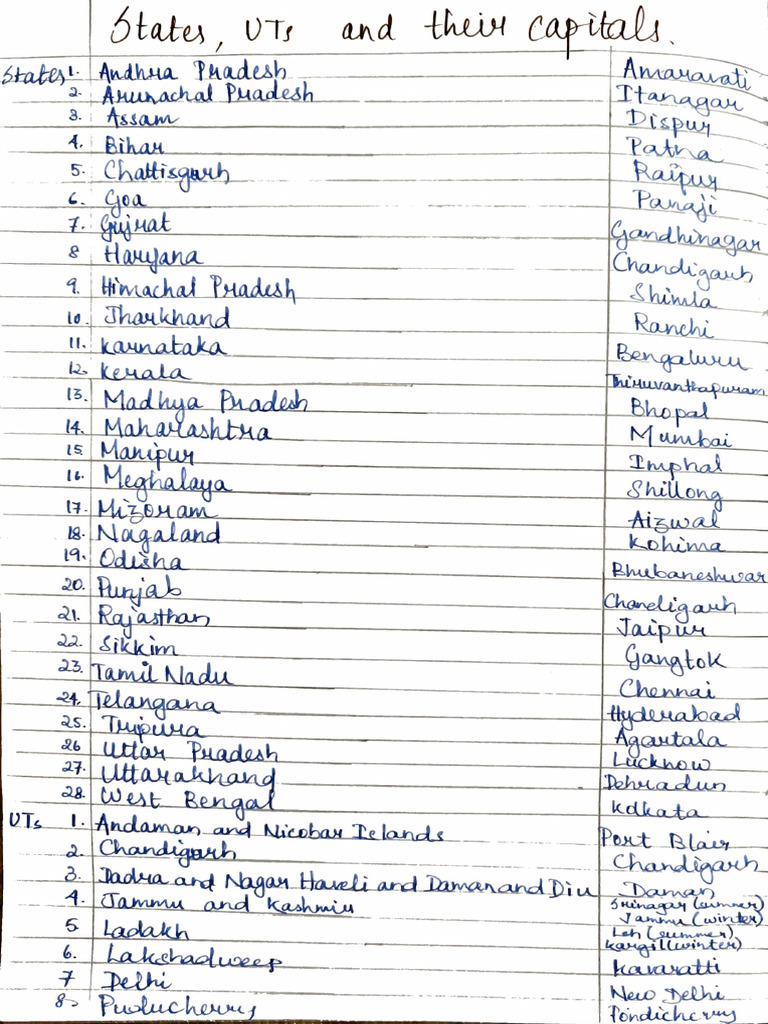 States, UTs and their capitals.
States 1. Andhra Pradesh Amaravati
2. Arunachal Pradesh Itanagar
3. Assam Dispur
4. Bihar Patna
5. Chattisgarh Raipur
6. Goa Panaji
7. Gujrat Gandhinagar
8 Haryana Chandigarh
9. Himachal Pradesh Shimla
10. Jharkhand Ranchi
11. Karnataka Bengaluru
12. Kerala Thiruvanthapuram
13. Madhya Pradesh Bhopal
14. Maharashtra Mumbai
15 Manipur Imphal
16. Meghalaya Shillong
17. Mizoram Aizwal
18. Nagaland Kohima
19. Odisha Bhubaneshwar
20. Punjab Chandigarh
21. Rajasthan Jaipur
22. Sikkim Gangtok
23. Tamil Nadu Chennai
24. Telangana Hyderabad
25. Tripura Agartala
26 Uttar Pradesh Lucknow
27. Uttarakhand Dehradun
28. West Bengal Kolkata
UTs 1. Andaman and Nicobar Islands Port Blair
2. Chandigarh Chandigarh
3. Dadra and Nagar Haveli and Daman and Diu Daman
4. Jammu and Kashmir Srinagar (summer)
Jammu (winter)
5. Ladakh Leh (summer)
Kargil (winter)
6. Lakshadweep Kavaratti
7 Delhi New Delhi
8. Puducherry Pondicherry